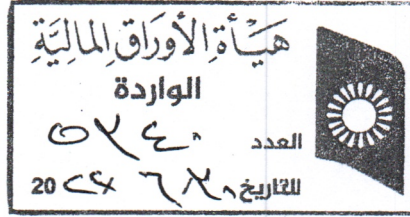 هَيْأَةِ الأَوْرَاقِ المَالِيَّةِ
الواردة
العدد ٥٣٤٠
للتاريخ ٦ 20